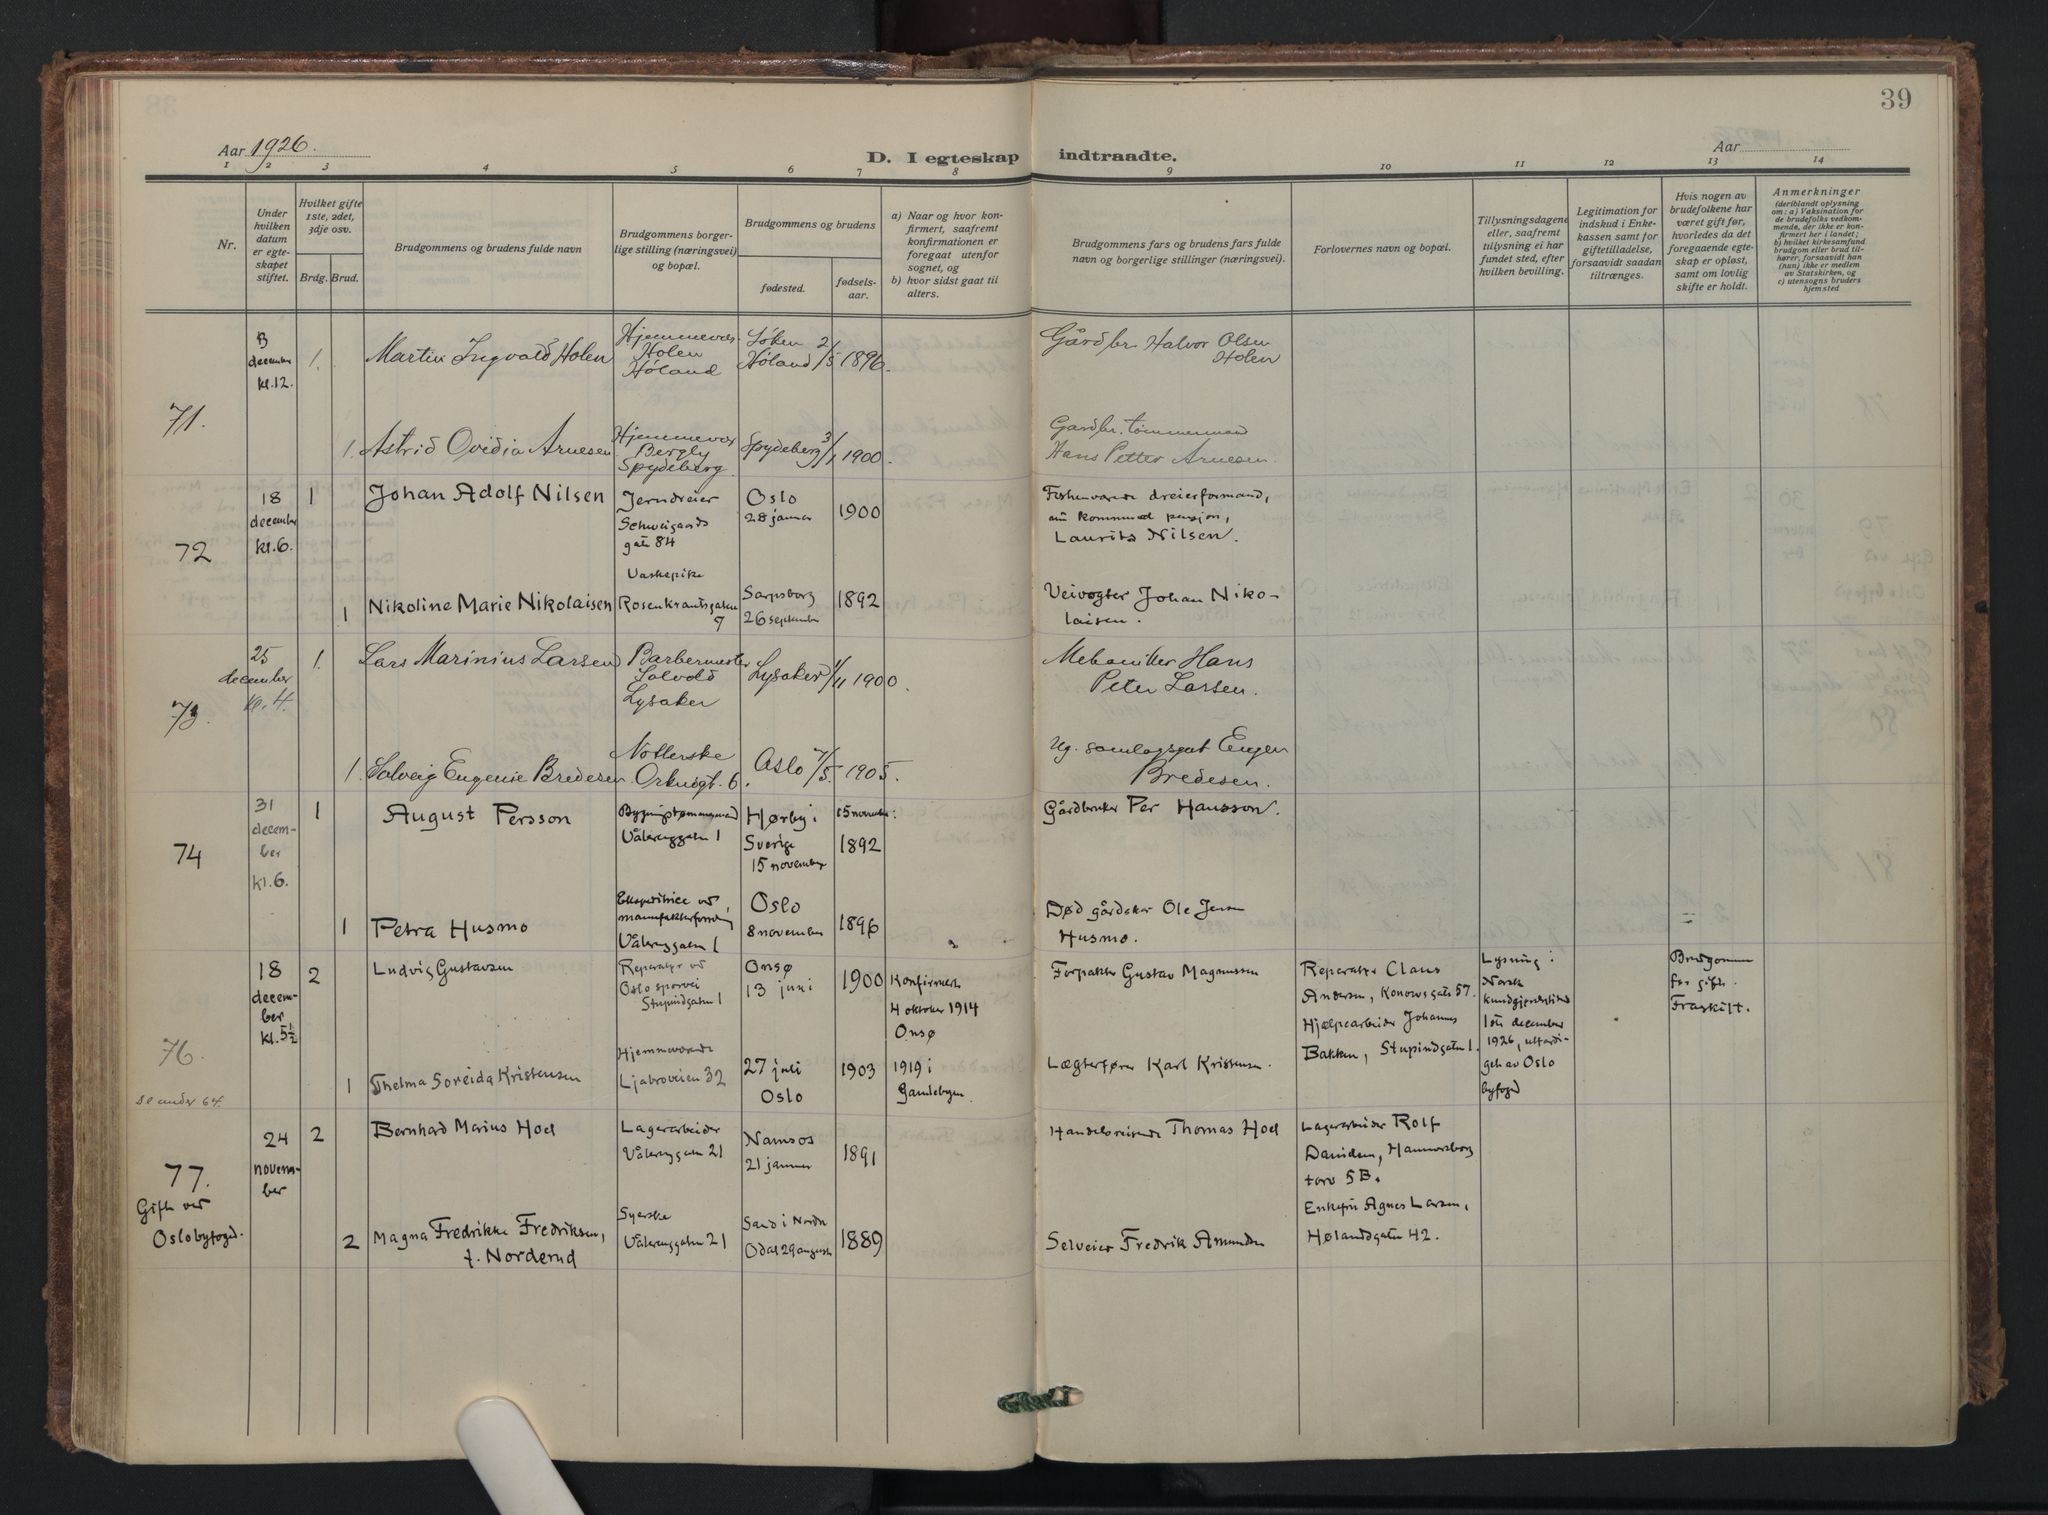 39
Aar 1926.
D. I egteskap indtraadte.
Aar
1 2 3 4 5 6 7 8 9 10 11 12 13 14
Nr.
Under hvilken datum er egteskapet stiftet.
Hvilket gifte 1ste, 2det, 3dje osv.
Brdg. Brud.
Brudgommens og brudens fulde navn
Brudgommens borgerlige stilling (næringsvei) og bopæl.
Brudgommens og brudens
fødested.
fødselsaar.
a) Naar og hvor konfirmert, saafremt konfirmationen er foregaat utenfor sognet, og
b) hvor sidst gaat til alters.
Brudgommens fars og brudens fars fulde navn og borgerlige stillinger (næringsvei).
Forlovernes navn og bopæl.
Tillysningsdagene eller, saafremt tillysning ei har fundet sted, efter hvilken bevilling.
Legitimation for indskud i Enkekassen samt for giftetilladelse, forsaavidt saadan tiltrænges.
Hvis nogen av brudefolkene har været gift før, hvorledes da det foregaaende egteskap er opløst, samt om lovlig skifte er holdt.
Anmerkninger
(deriblandt oplysning om: a) Vaksination for de brudefolks vedkommende, der ikke er konfirmert her i landet; b) hvilket kirkesamfund brudgom eller brud tilhører, forsaavidt han (hun) ikke er medlem av Statskirken, og c) utensogns bruders hjemsted
71.
december
kl.12.
1.
Martin Ingvald Holen
Holen
Høland
Høland 2/5 1896.
Gårdbr. Halvor Olsen
Holen
1.
Astrid Ovidia Arnesen
Bergly
Spydeberg
Spydeberg 3/1 1900.
Gardbr. tømmermand
Hans Petter Arnesen.
72
18
december
kl.6.
1
Johan Adolf Nilsen
Jerndreier
Schweigaards
gate 84
Oslo
28 januar
1900
dreierformand,
Laurits Nilsen.
1
Nikoline Marie Nikolaisen
Vaskepike
Rosenkrantsgaten
7
Sarpsborg
26 september
1892
Veivogter Johan Niko-
laisen.
73.
25
december
kl.4.
1.
Lars Marinius Larsen
Barbermester
Solvold
Lysaker
Lysaker 1/11 1900.
Mekaniker Hans
Peter Larsen.
1.
Solveig Eugenie Bredesen
Orknøgt. 6.
Oslo 7/5. 1905.
Eugen
Bredesen.
74
31
decem-
ber
kl.6.
1
August Persson
Vålerenggaten 1
Hørby i
Sverige
15 november
15 november
1892
Gårdbruker Per Hansson.
1
Petra Husmo
Ekspeditrice ved
manufakturforretning
Vålerenggaten 1
Oslo
8 november
1896
Død gårdeier Ole Jensen
Husmo.
76.
se under 64.
18
decem-
ber
kl. 5 1/2
2
Ludvig Gustavsen
Reparatør ved
Oslo sporvei
Stupindgaten 1
Onsø
13 juni
1900
Konfirmert
4 oktober 1914
Onsø
Forpakter Gustav Magnussen
Reparatør Claus
Andersen, Konowsgate 57.
Hjælpearbeider Johannes
Bakken, Stupindgaten 1.
Lysning i
Norsk
kundgjørelsestidende
1ste december
1926, utfærdi-
get av Oslo
byfogd
Brudgommen
før gift.
Fraskilt.
1
Thelma Soreida Kristensen
Hjemmeværende
Ljabroveien 32
27 juli
Oslo
1903
1919 i
Gamlebyen.
Lægterfører Karl Kristensen.
77.
Gift ved
Oslo byfogd.
24
novem-
ber
2
Bernhard Marius Hoel
Lagerarbeider
Vålerenggaten 21
Namsos
21 januar
1891
Handelsreisende Thomas Hoel
Lagerarbeider Rolf
Davidsen, Hammersborg
torv 5B.
2
Magna Fredrikke Fredriksen,
f. Norderud
Syerske
Vålerenggaten 21
Sand i Nordre
Odal 29 august
1889
Selveier Fredrik Amundsen
Enkefru Agnes Larsen,
Hølandsgaten 42.